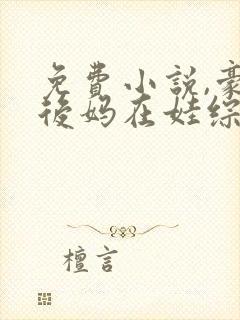 免費小説,豪
後妈在娃综
檀言